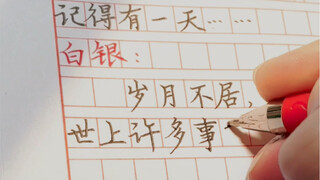 记得有一天……
白银：
岁月不居，
世上许多事